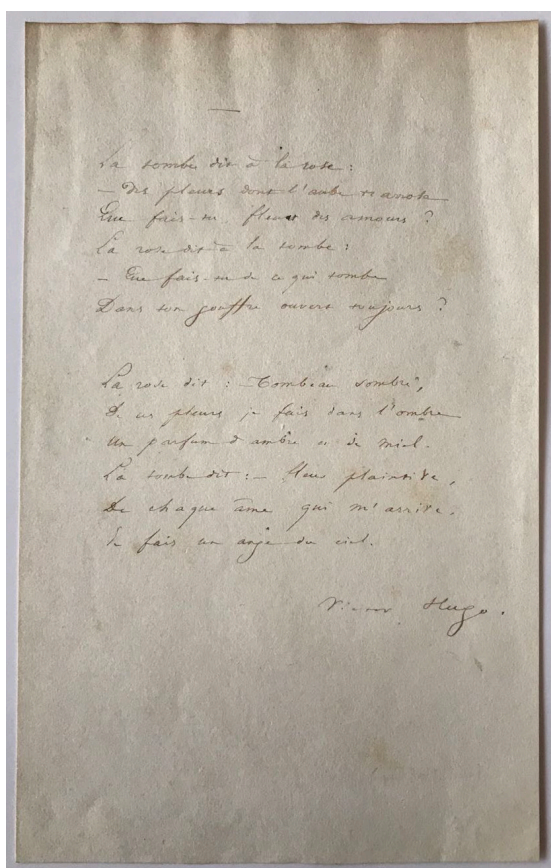 La tombe dit à la rose :
– Des pleurs dont l'aube t'arrose
Que fais-tu, fleur des amours ?
La rose dit à la tombe :
– Que fais-tu de ce qui tombe
Dans ton gouffre ouvert toujours ?
La rose dit : – Tombeau sombre,
De ces pleurs je fais dans l'ombre
Un parfum d'ambre et de miel.
La tombe dit : – Fleur plaintive,
De chaque âme qui m'arrive,
Je fais un ange du ciel.
Victor Hugo.